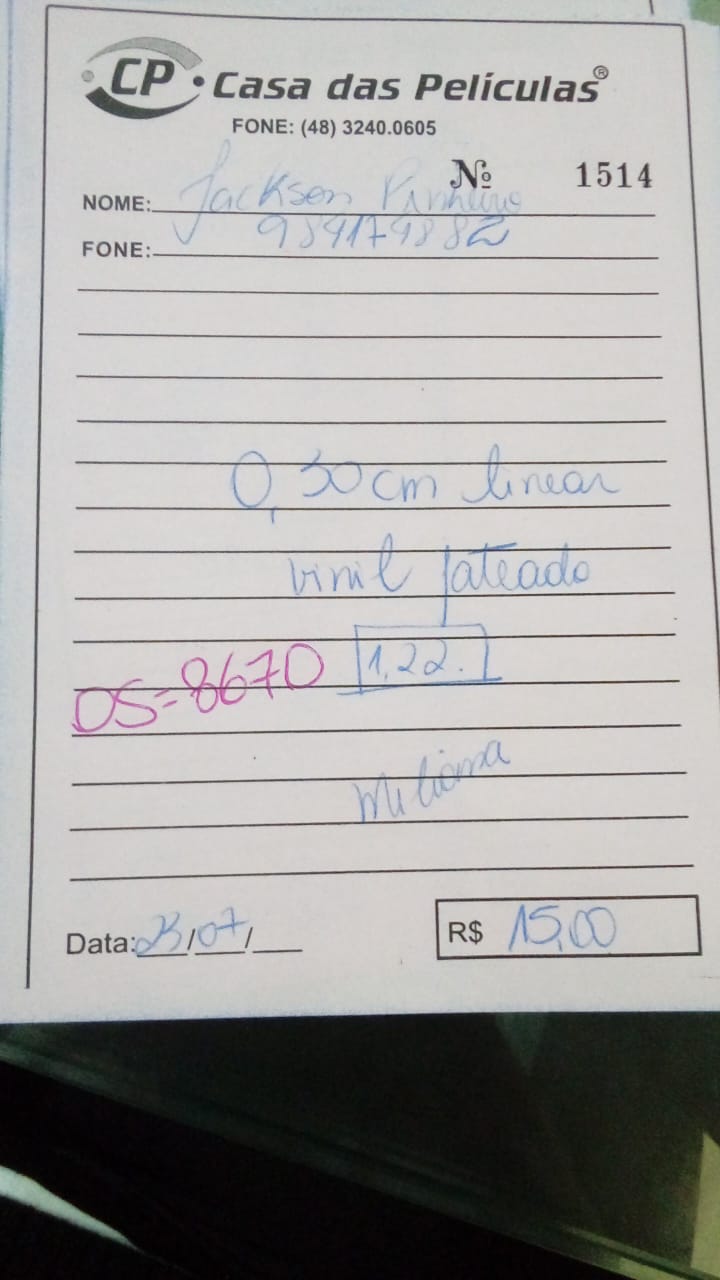 CP • Casa das Películas®
FONE: (48) 3240.0605
Nº 1514
NOME: Jackson Pinheiro
FONE: 984174882
0,30cm linear
vinil jateado
OS=8670 1,22.
Data: 23/07/
R$ 15,00